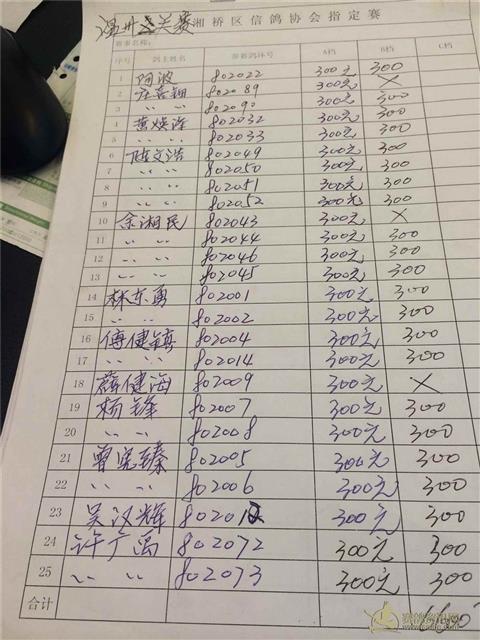 温州关赛湘桥区信鸽协会指定赛
赛事名称：
序号 鸽主姓名 参赛鸽环号 A档 B档 C档
1 阿波 802022 300元 300
2 庄喜钿 802089 300元 ×
3 〃 〃 802090 300元 300
4 黄焕淮 802032 300元 300
5 〃 〃 802033 300元 300
6 陆文浩 802049 300元 300
7 〃 〃 802050 300元 300
8 〃 〃 802051 300元 300
9 〃 〃 802052 300元 300
10 余湘民 802043 300元 ×
11 〃 〃 802044 300元 300
12 〃 〃 802046 300元 300
13 〃 〃 802045 300元 300
14 林东勇 802001 300元 300
15 〃 〃 802002 300元 300
16 傅健镇 802004 300元 300
17 〃 〃 802014 300元 300
18 薛健海 802009 300元 ×
19 杨锋 802007 300元 300
20 〃 〃 802008 300元 300
21 曾宪臻 802005 300元 300
22 〃 〃 802006 300元 300
23 吴汉辉 300元 300
24 许广禹 802072 300元 300
25 〃 〃 802073 300元 300
合计